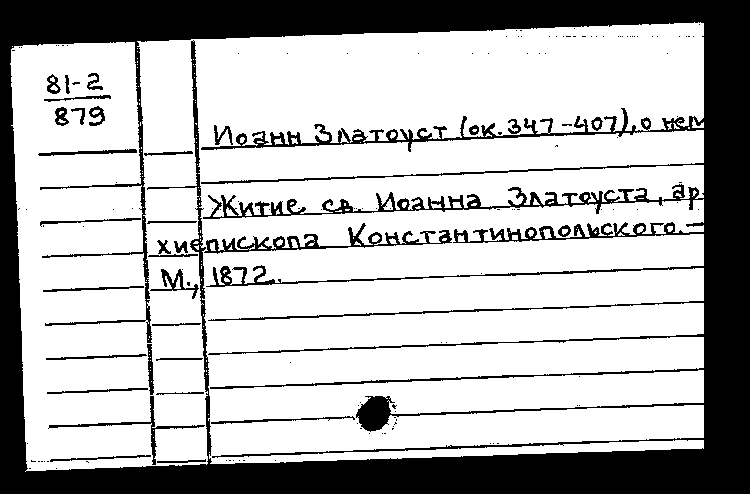 81-2
879
Иоанн Златоуст (ок. 347-407), о нем
Житие св. Иоанна Златоуста, ар-
хиепископа Константинопольского.—
М., 1872.